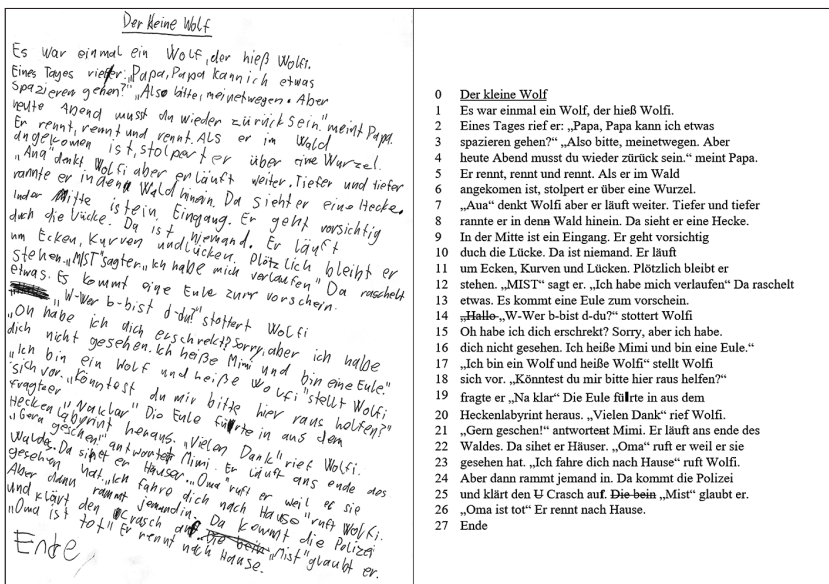 Der kleine Wolf
Es war einmal ein Wolf, der hieß Wolfi.
Eines Tages rief er: „Papa, Papa kann ich etwas
spazieren gehen?" „Also bitte, meinetwegen. Aber
heute Abend musst du wieder zürück sein." meint Papa.
Er rennt, rennt und rennt. Als er im Wald
angekomen ist, stolpert er über eine Wurzel.
„Aua" denkt Wolfi aber er läuft weiter. Tiefer und tiefer
rannte er in den Wald hinein. Da sieht er eine Hecke.
In der Mitte ist ein Eingang. Er geht vorsichtig
duch die Lücke. Da ist niemand. Er läuft
um Ecken, Kurven und Lücken. Plötzlich bleibt er
stehen. „MIST" sagt er. „Ich habe mich verlaufen" Da raschelt
etwas. Es kommt eine Eule zum vorschein.
„W-Wer b-bist d-du?" stottert Wolfi
„Oh habe ich dich erschrekt? Sorry, aber ich habe
dich nicht gesehen. Ich heiße Mimi und bin eine Eule."
„Ich bin ein Wolf und heiße Wolfi" stellt Wolfi
sich vor. „Könntest du mir bitte hier raus helfen?"
fragte er „Na klar" Die Eule fürte in aus dem
Heckenlabyrint heraus. „Vielen Dank" rief Wolfi.
„Gern geschen!" antwortet Mimi. Er läuft ans ende des
Waldes. Da sihet er Häuser. „Oma" ruft er weil er sie
gesehen hat. „Ich fahre dich nach Hause" ruft Wolfi.
Aber dann rammt jemand in. Da kommt die Polizei
und klärt den Crasch auf. Die bein „Mist" glaubt er.
„Oma ist tot" Er rennt nach Hause.
Ende
0 Der kleine Wolf
1 Es war einmal ein Wolf, der hieß Wolfi.
2 Eines Tages rief er: „Papa, Papa kann ich etwas
3 spazieren gehen?" „Also bitte, meinetwegen. Aber
4 heute Abend musst du wieder zürück sein." meint Papa.
5 Er rennt, rennt und rennt. Als er im Wald
6 angekomen ist, stolpert er über eine Wurzel.
7 „Aua" denkt Wolfi aber er läuft weiter. Tiefer und tiefer
8 rannte er in denn Wald hinein. Da sieht er eine Hecke.
9 In der Mitte ist ein Eingang. Er geht vorsichtig
10 duch die Lücke. Da ist niemand. Er läuft
11 um Ecken, Kurven und Lücken. Plötzlich bleibt er
12 stehen. „MIST" sagt er. „Ich habe mich verlaufen" Da raschelt
13 etwas. Es kommt eine Eule zum vorschein.
14 „Hallo „W-Wer b-bist d-du?" stottert Wolfi
15 Oh habe ich dich erschrekt? Sorry, aber ich habe.
16 dich nicht gesehen. Ich heiße Mimi und bin eine Eule."
17 „Ich bin ein Wolf und heiße Wolfi" stellt Wolfi
18 sich vor. „Könntest du mir bitte hier raus helfen?"
19 fragte er „Na klar" Die Eule fürte in aus dem
20 Heckenlabyrint heraus. „Vielen Dank" rief Wolfi.
21 „Gern geschen!" antwortent Mimi. Er läuft ans ende des
22 Waldes. Da sihet er Häuser. „Oma" ruft er weil er sie
23 gesehen hat. „Ich fahre dich nach Hause" ruft Wolfi.
24 Aber dann rammt jemand in. Da kommt die Polizei
25 und klärt den U Crasch auf. Die bein „Mist" glaubt er.
26 „Oma ist tot" Er rennt nach Hause.
27 Ende